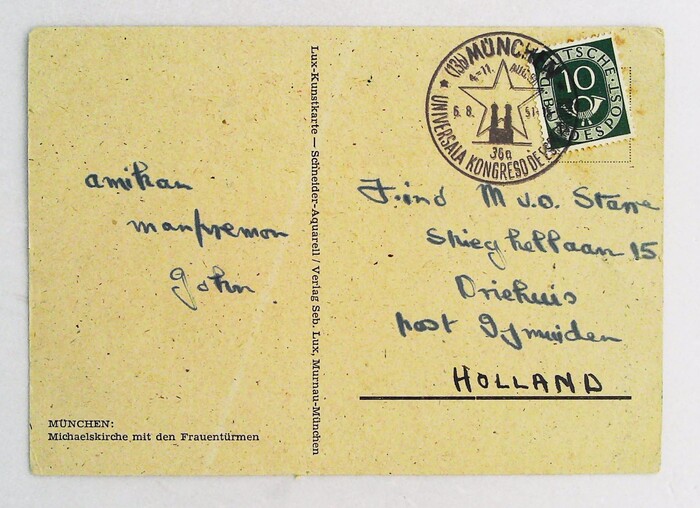 amikan
manpremon
John
MÜNCHEN:
Michaelskirche mit den Frauentürmen
Lux-Kunstkarte — Schneider-Aquarell / Verlag Seb. Lux, Murnau-München
(13b) MÜNCHEN
4.-11. AUG. 51
6.8. 51
36a
UNIVERSALA KONGRESO DE
DEUTSCHE BUNDESPOST
10
F.ind M v.d. Starre
Driehuis
post Ijmuiden
HOLLAND